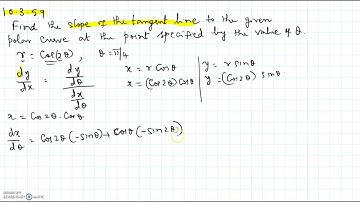 10.3.59
Find the slope of the tangent line to the given
polar curve at the point specified by the value of θ.
r = Cos(2θ), θ = π/4
dy/dx = (dy/dθ)/(dx/dθ)
x = r Cosθ
x = (Cos2θ) Cosθ
y = r sinθ
y = (Cos2θ) sinθ
x = Cos2θ · Cosθ
dx/dθ = Cos2θ (-sinθ) + Cosθ (-sin2θ)